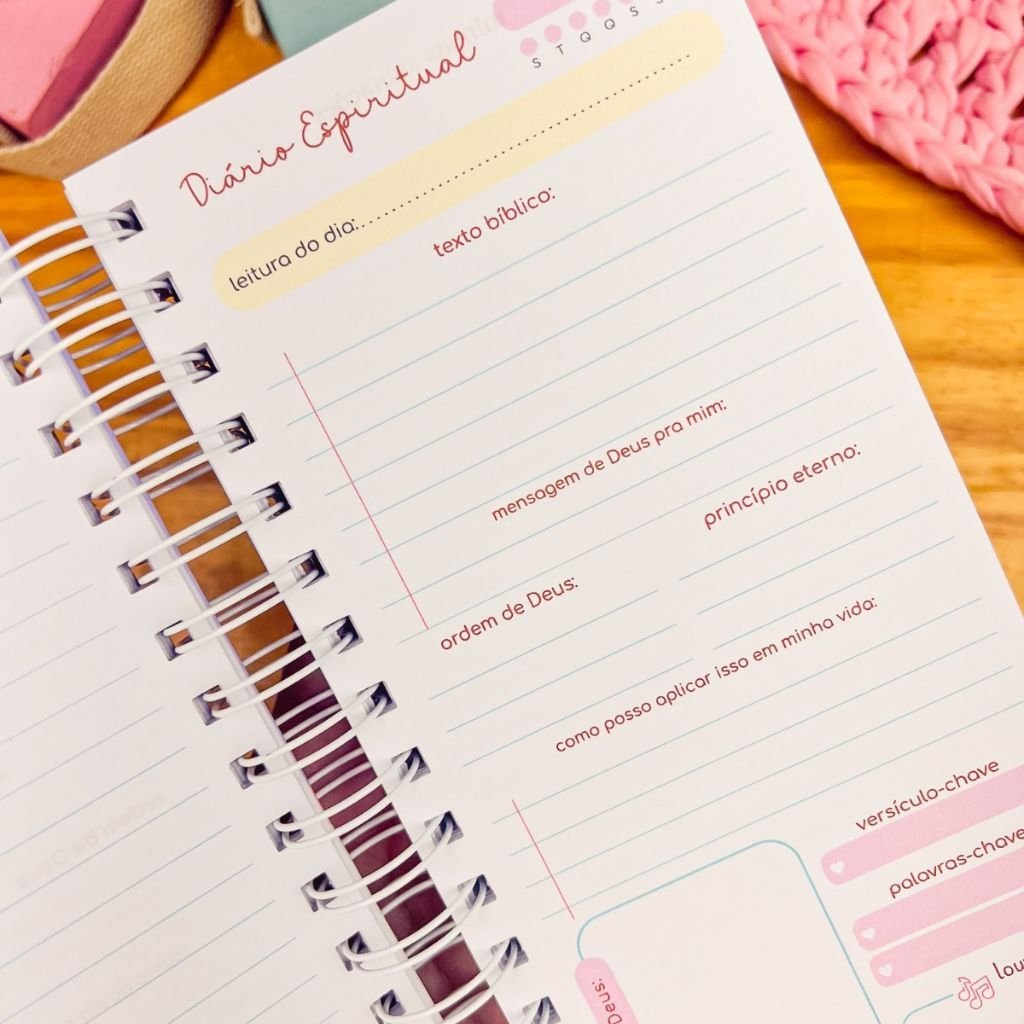 Diário Espiritual
S T Q Q S S
leitura do dia:
texto bíblico:
mensagem de Deus pra mim:
princípio eterno:
ordem de Deus:
como posso aplicar isso em minha vida:
versículo-chave
palavras-chave
Deus: